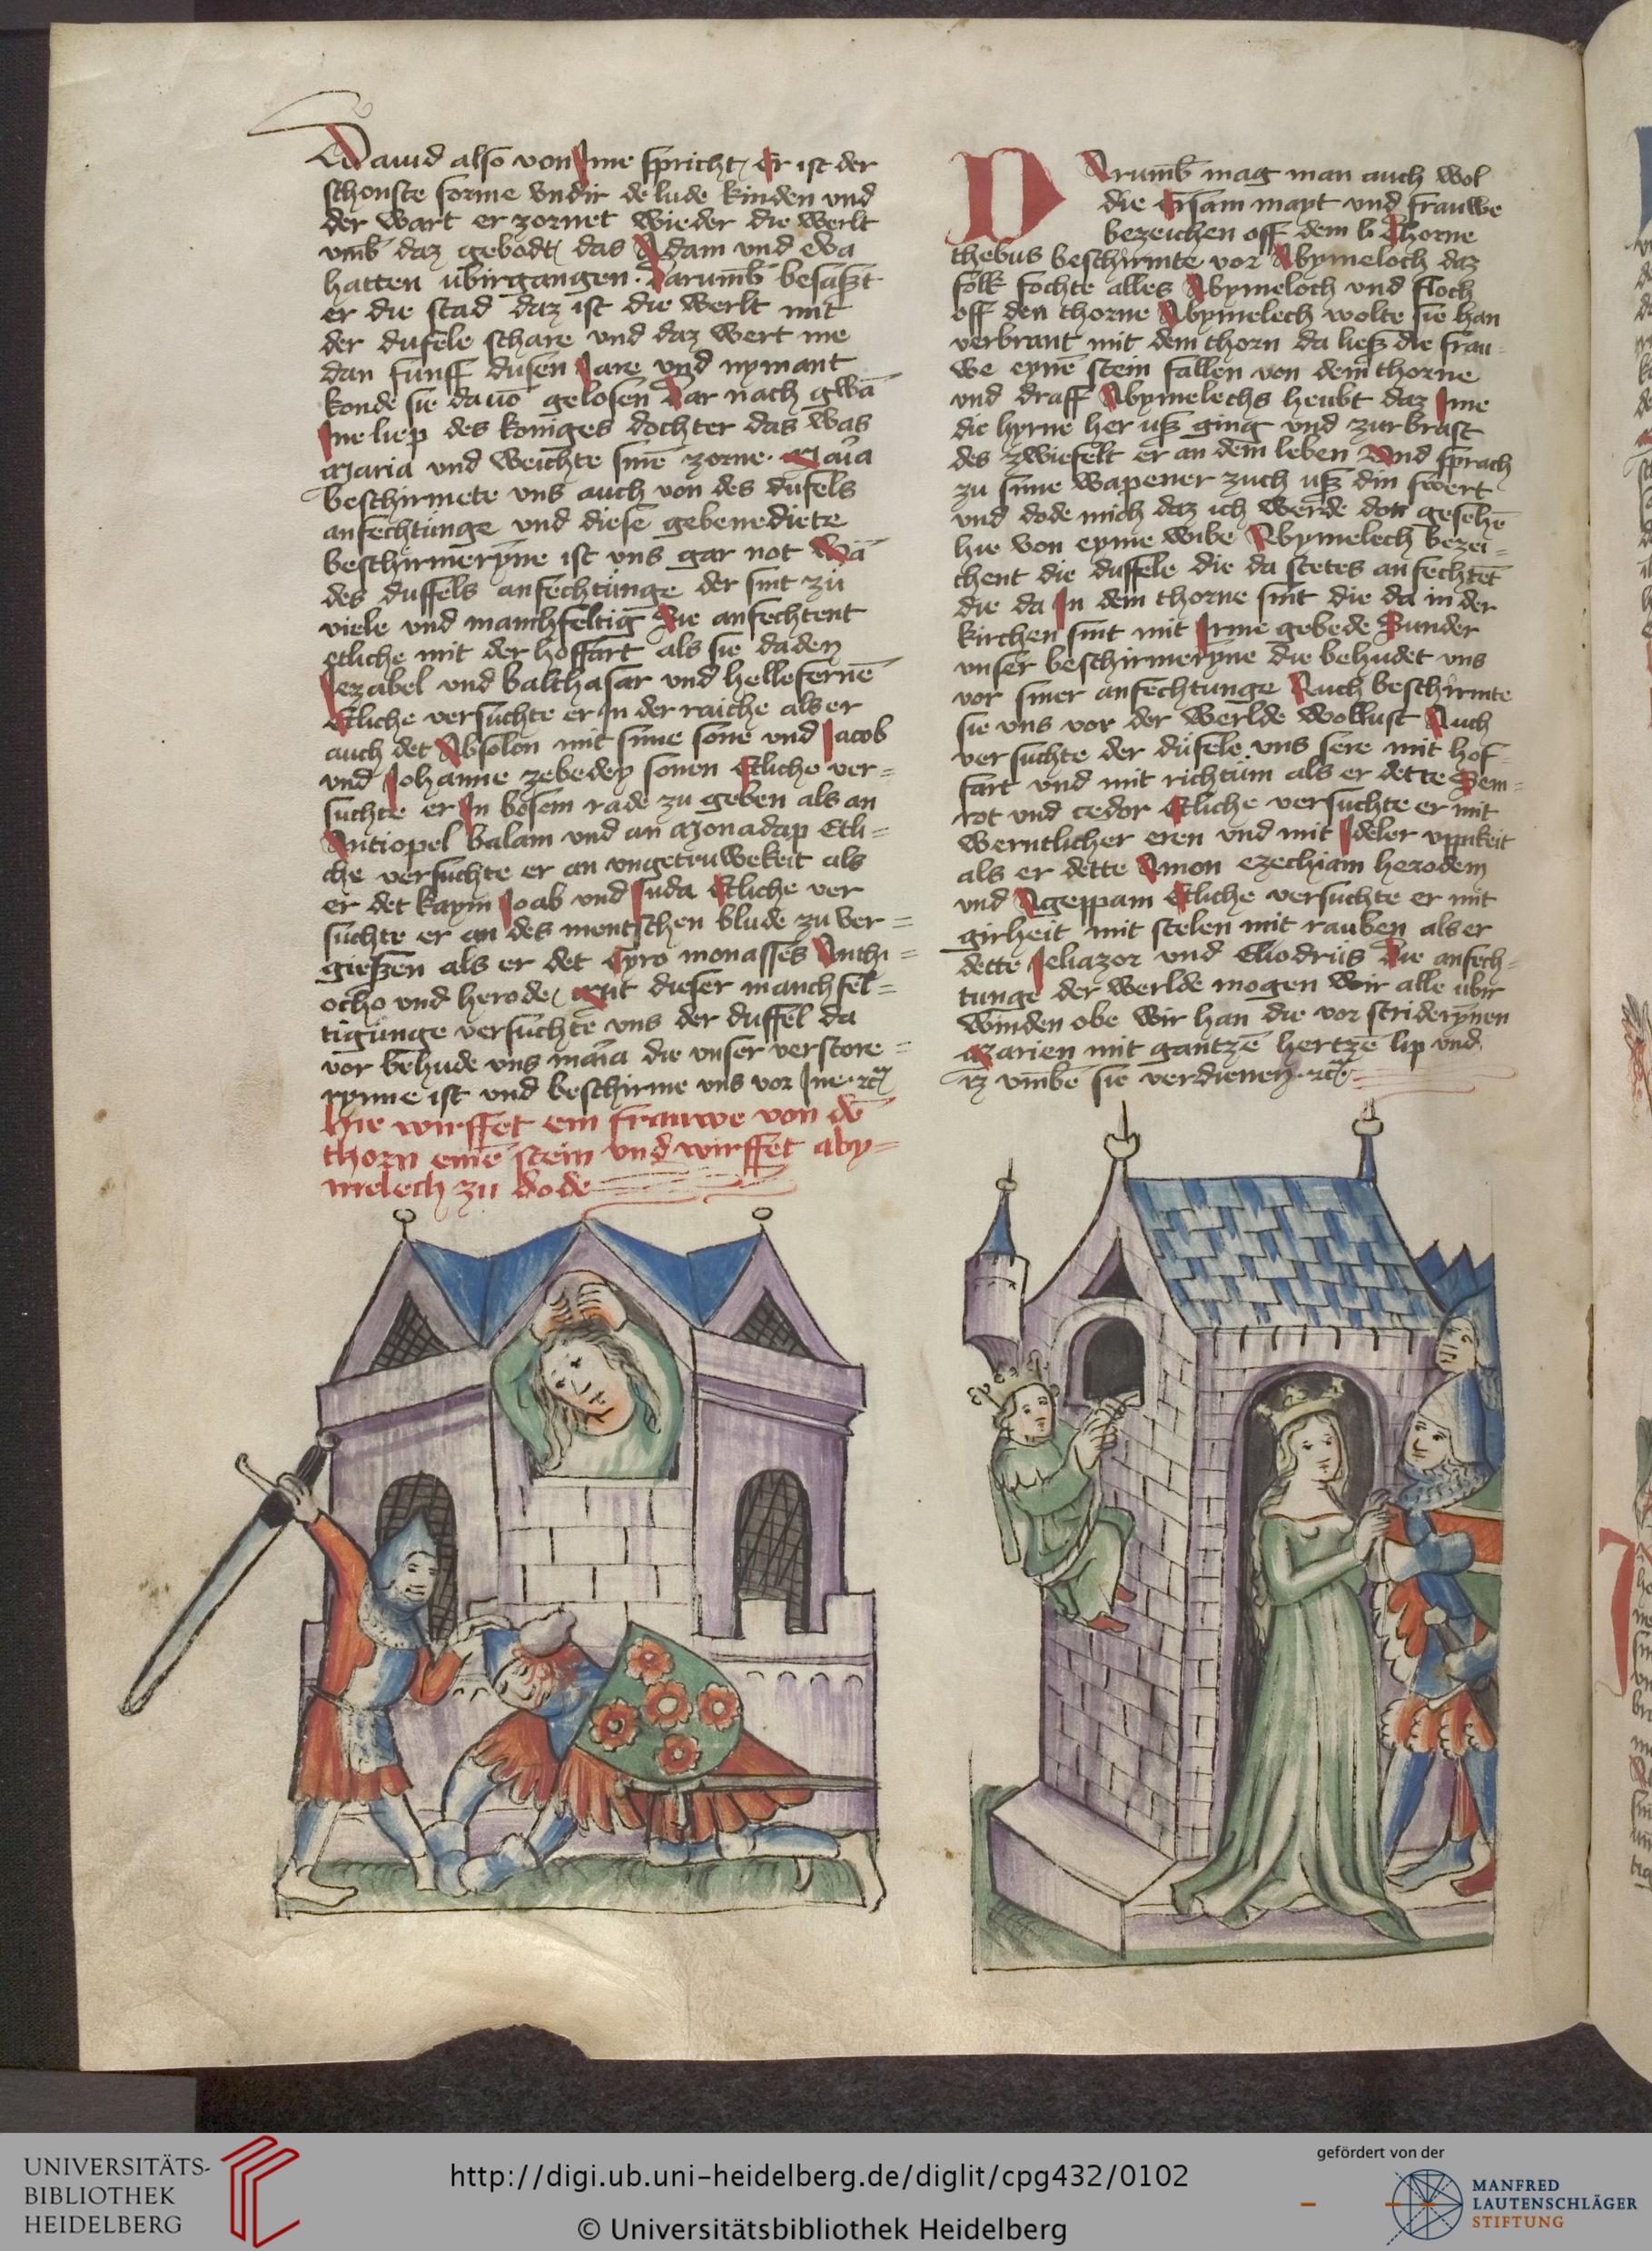 Dauid also von Ime spricht Er ist der
schonste forme vndir de lude kinden vnd
der wart er zornet wieder die werlt
vmb daz gebodt das Adam vnd eva
hatten ubirgangen. Darumb besaszt
er die stad daz ist die werlt mit
der dufele schare vnd daz wert me
dan funff dusen Jare vnd nymant
konde sie dauō gelosen Dar nach gwā
Ine liep des koniges dochter das was
Maria vnd weichte sinē zorne. Maria
beschirmete vns auch von des dufels
anfechtunge vnd diese gebenediete
beschirmeryne ist vns gar not Wā
des duffels anfechtunge der sint zu
viele vnd manchfeltig Sie anfechtent
etliche mit der hoffart als sie daden
Jezabel vnd balthasar vnd hellefernē
Etliche versuchte er In der raiche als er
auch det Absolon mit sime sone vnd Jacob
vnd Johanne zebedey sonen Etliche ver=
suchte er In bosem rade zu geben als an
Antiopel balam vnd an Monadap Etli=
che versuchte er an vngetruwekeit als
er det kaym Joab vnd Juda Etliche ver
suchte er an des mentschen blude zu ver=
gieszen als er det Cyro monasses Anthi=
ocho vnd herode, Mit dieser manchfel=
tigunge versuchte vns der duffel da
vor behude vns maria die vnser verstore=
rynne ist vnd beschirme vns vor Ine. etc
Hie wirffet ein frauwe von dē
thorn einē stein vnd wirffet aby=
melech zu dode
DArumb mag man auch wol
die Ersam mayt vnd frauwe
bezeichen off dem b. Thorne
thebus beschirmte vor Abymeloch daz
folk fochte alles Abymeloch vnd floch
off den thorne Abymelech wolte sie han
verbrant mit dem thorn da liesz die frau=
we eynē stein fallen von dem thorne
vnd draff Abymelechs heubt daz Ime
die hyrne her usz ging vnd zurbrast
des zwiefelt er an dem leben Vnd sprach
zu sime wapener zuch usz din swert
vnd dode mich daz ich werde dot gesehē
hie von eyme wibe Abymelech bezei=
chent die duffele die da stetes anfechtēt
die da In dem thorne sint die da in der
kirchen sint mit Irme gebede Sunder
vnser beschirmeryne die behudet vns
vor siner anfechtunge Auch beschirmte
sie vns vor der werlde wollust Auch
versuchte der dufele vns sere mit hof=
fart vnd mit richtum als er dette Nem=
rot vnd cedor Etliche versuchte er mit
werntlicher eren vnd mit Ideler vppikeit
als er dette Amon ezechiam herodem
vnd Ageppam Etliche versuchte er mit
girheit mit stelen mit rauben als er
dette Jeliazor vnd Eliodrus Die anfech=
tunge der werlde mogen wir alle ubir
winden obe wir han die vor striderynen
Marien mit gantzē hertzē lip vnd
iz vmbe sie verdienen. etc
UNIVERSITÄTS-
BIBLIOTHEK
HEIDELBERG
http://digi.ub.uni-heidelberg.de/diglit/cpg432/0102
© Universitätsbibliothek Heidelberg
gefördert von der
MANFRED
LAUTENSCHLÄGER
STIFTUNG